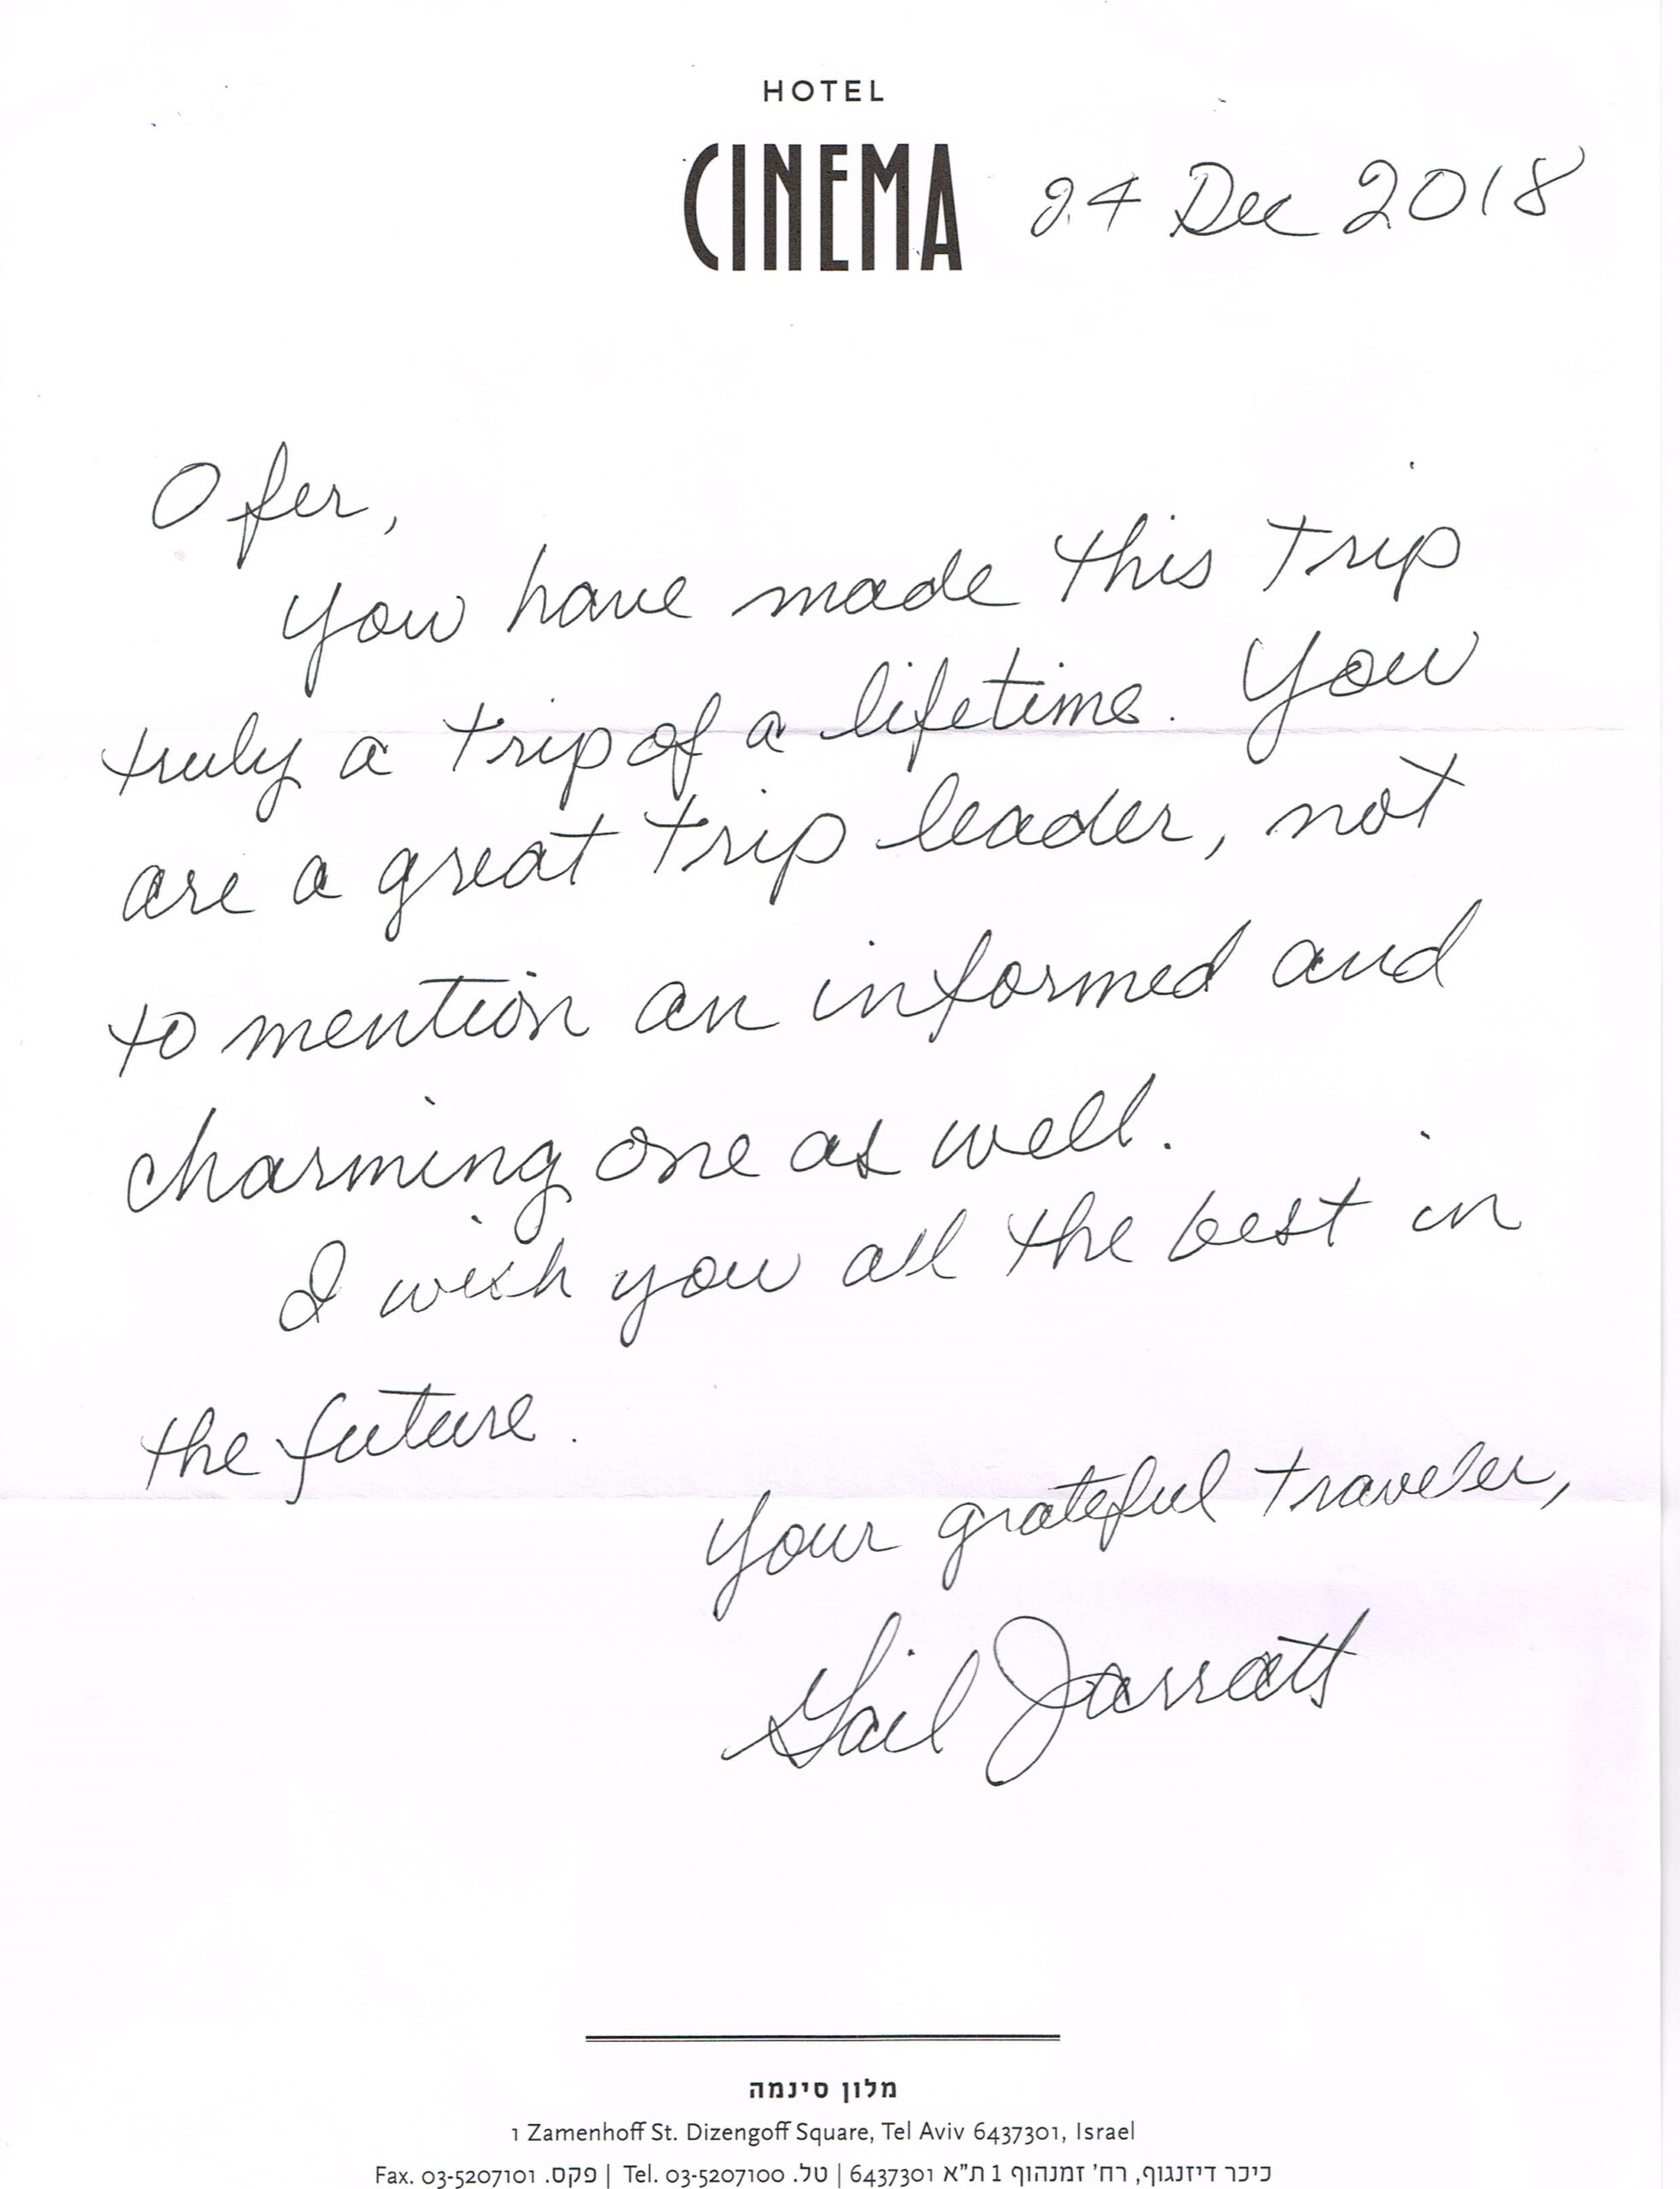 HOTEL
CINEMA
24 Dec 2018
Ofer,
You have made this trip
truly a trip of a lifetime. You
are a great trip leader, not
to mention an informed and
charming one as well.
I wish you all the best in
the future.
Your grateful traveler,
Gail Jarratt
מלון סינמה
1 Zamenhoff St. Dizengoff Square, Tel Aviv 6437301, Israel
כיכר דיזנגוף, רח' זמנהוף 1 ת"א 6437301 | טל. Tel. 03-5207100 | פקס. Fax. 03-5207101